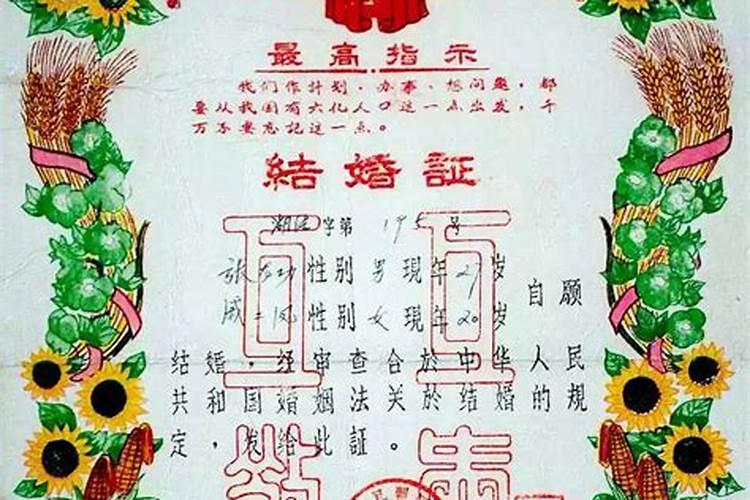 最高指示
我们作计划、办事、想问题，都
要从我国有六亿人口这一点出发，千
万不要忘記这一点。
结婚証
字第 195 号
张 功 性别 男 現年 27 岁
戚二凤 性别 女 現年 20 岁
自願
结婚，经审查合於中华人民
共和国婚姻法关於结婚的規
定，发给此証。
互互
敬爱